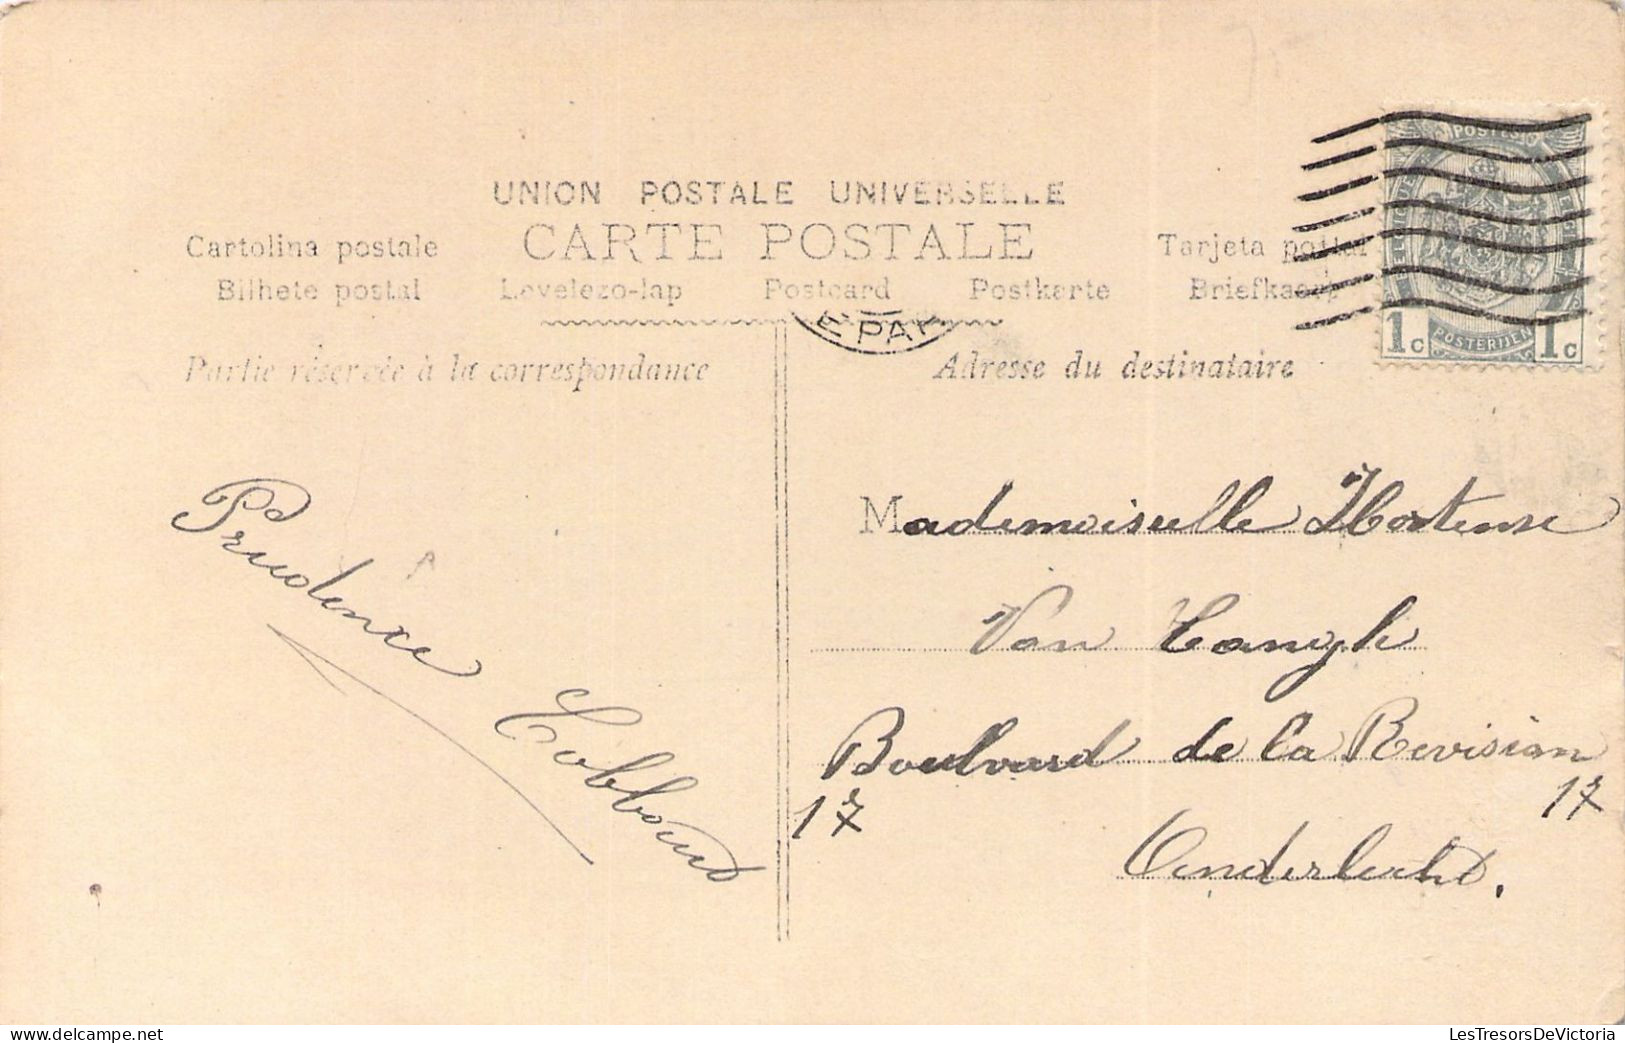 UNION POSTALE UNIVERSELLE
CARTE POSTALE
Cartolina postale
Tarjeta postal
Bilhete postal
Levelezo-lap
Postcard
Postkarte
Briefkaart
E PA
POSTES
POSTERIJEN
1c 1c
Partie réservée à la correspondance
Adresse du destinataire
Prudence
Mademoiselle Hortense
Van
Boulvard de la Revision
17 17
Anderlecht.
LesTresorsDeVictoria